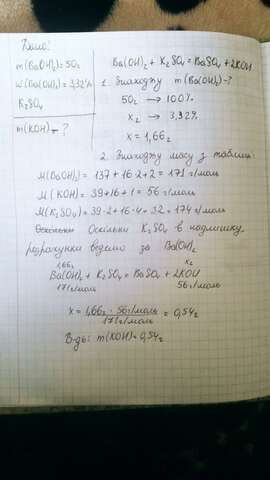 Дано:
m(Ba(OH)₂)=50г
w(Ba(OH)₂)=3,32%
K₂SO₄
m(KOH)-?
Ba(OH)₂ + K₂SO₄ = BaSO₄ + 2KOH
1. Знаходжу m(Ba(OH)₂)-?
50г → 100%
xг → 3,32%
x = 1,66г
2. Знаходжу масу з таблиці:
M(Ba(OH)₂) = 137+16·2+2 = 171 г/моль
M(KOH) = 39+16+1 = 56 г/моль
M(K₂SO₄) = 39·2+16·4+32 = 174 г/моль
Оскільки K₂SO₄ в надлишку
розрахунки ведемо за Ba(OH)₂
1,66г xг
Ba(OH)₂ + K₂SO₄ = BaSO₄ + 2KOH
171г/моль 56г/моль
x = 1,66г · 56г/моль / 171г/моль = 0,54г
В-дь: m(KOH) = 0,54г